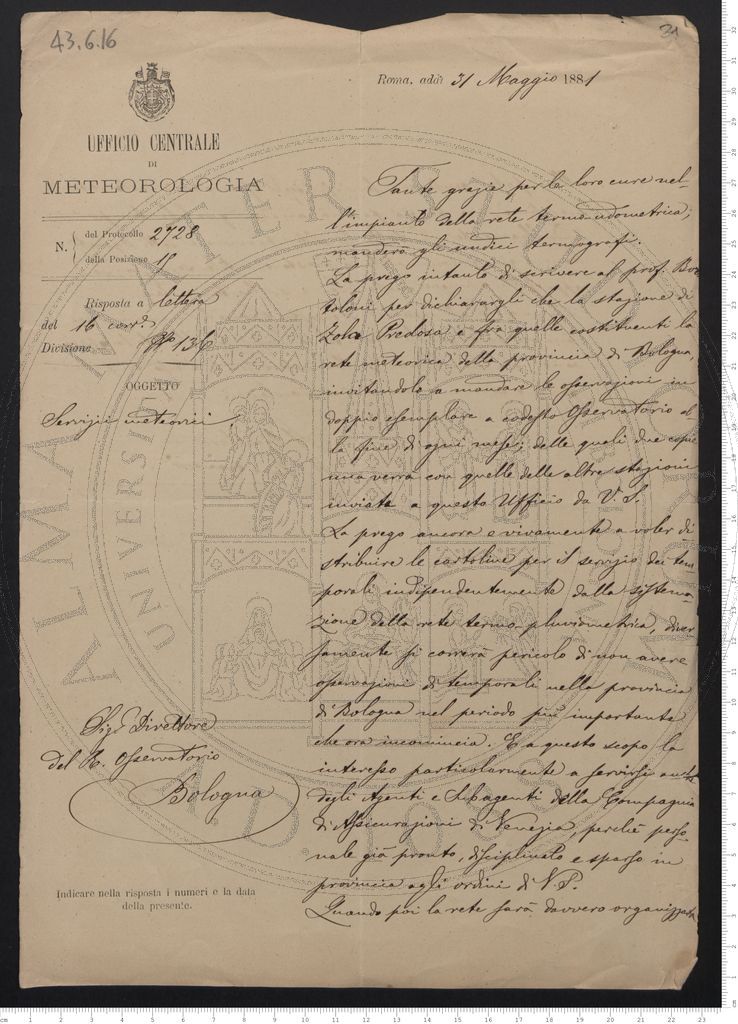 43.6.16
31
Roma, addì 31 Maggio 1881
UFFICIO CENTRALE
DI
METEOROLOGIA
N. del Protocollo 2728
della Posizione 15
Risposta a lettera
del 16 corr.e
Divisione N° 136
OGGETTO
Servizii meteorici.
Tante grazie per le loro cure nel-
l'impianto della rete termo-udometrica;
manderò gli undici termografi.
La prego intanto di scrivere al prof. Bor
toloni per dichiarargli che la stazione di
Zola Predosa è fra quelle costituenti la
rete meteorica della provincia di Bologna,
invitandolo a mandare le osservazioni in
doppio esemplare a codesto Osservatorio al
la fine di ogni mese; delle quali due copie
una verrà con quelle delle altre stazioni
inviata a questo Ufficio da V. S.
La prego ancora e vivamente a voler di
stribuire le cartoline per il servizio dei tem
porali indipendentemente dalla sistema
zione della rete termo pluviometrica, diver
samente si correrà pericolo di non avere
osservazioni di temporali nella provincia
di Bologna nel periodo più importante
che ora incomincia. E a questo scopo la
interesso particolarmente a servirsi anche
degli Agenti e Subagenti della Compagnia
di Assicurazioni di Venezia, perchè perso
nale già pronto, disciplinato e sparso in
provincia agli ordini di V. S.
Quando poi la rete sarà davvero organizzata
Sigr Direttore
del R. Osservatorio
Bologna
Indicare nella risposta i numeri e la data
della presente.
ALMA MATER STUDIORUM